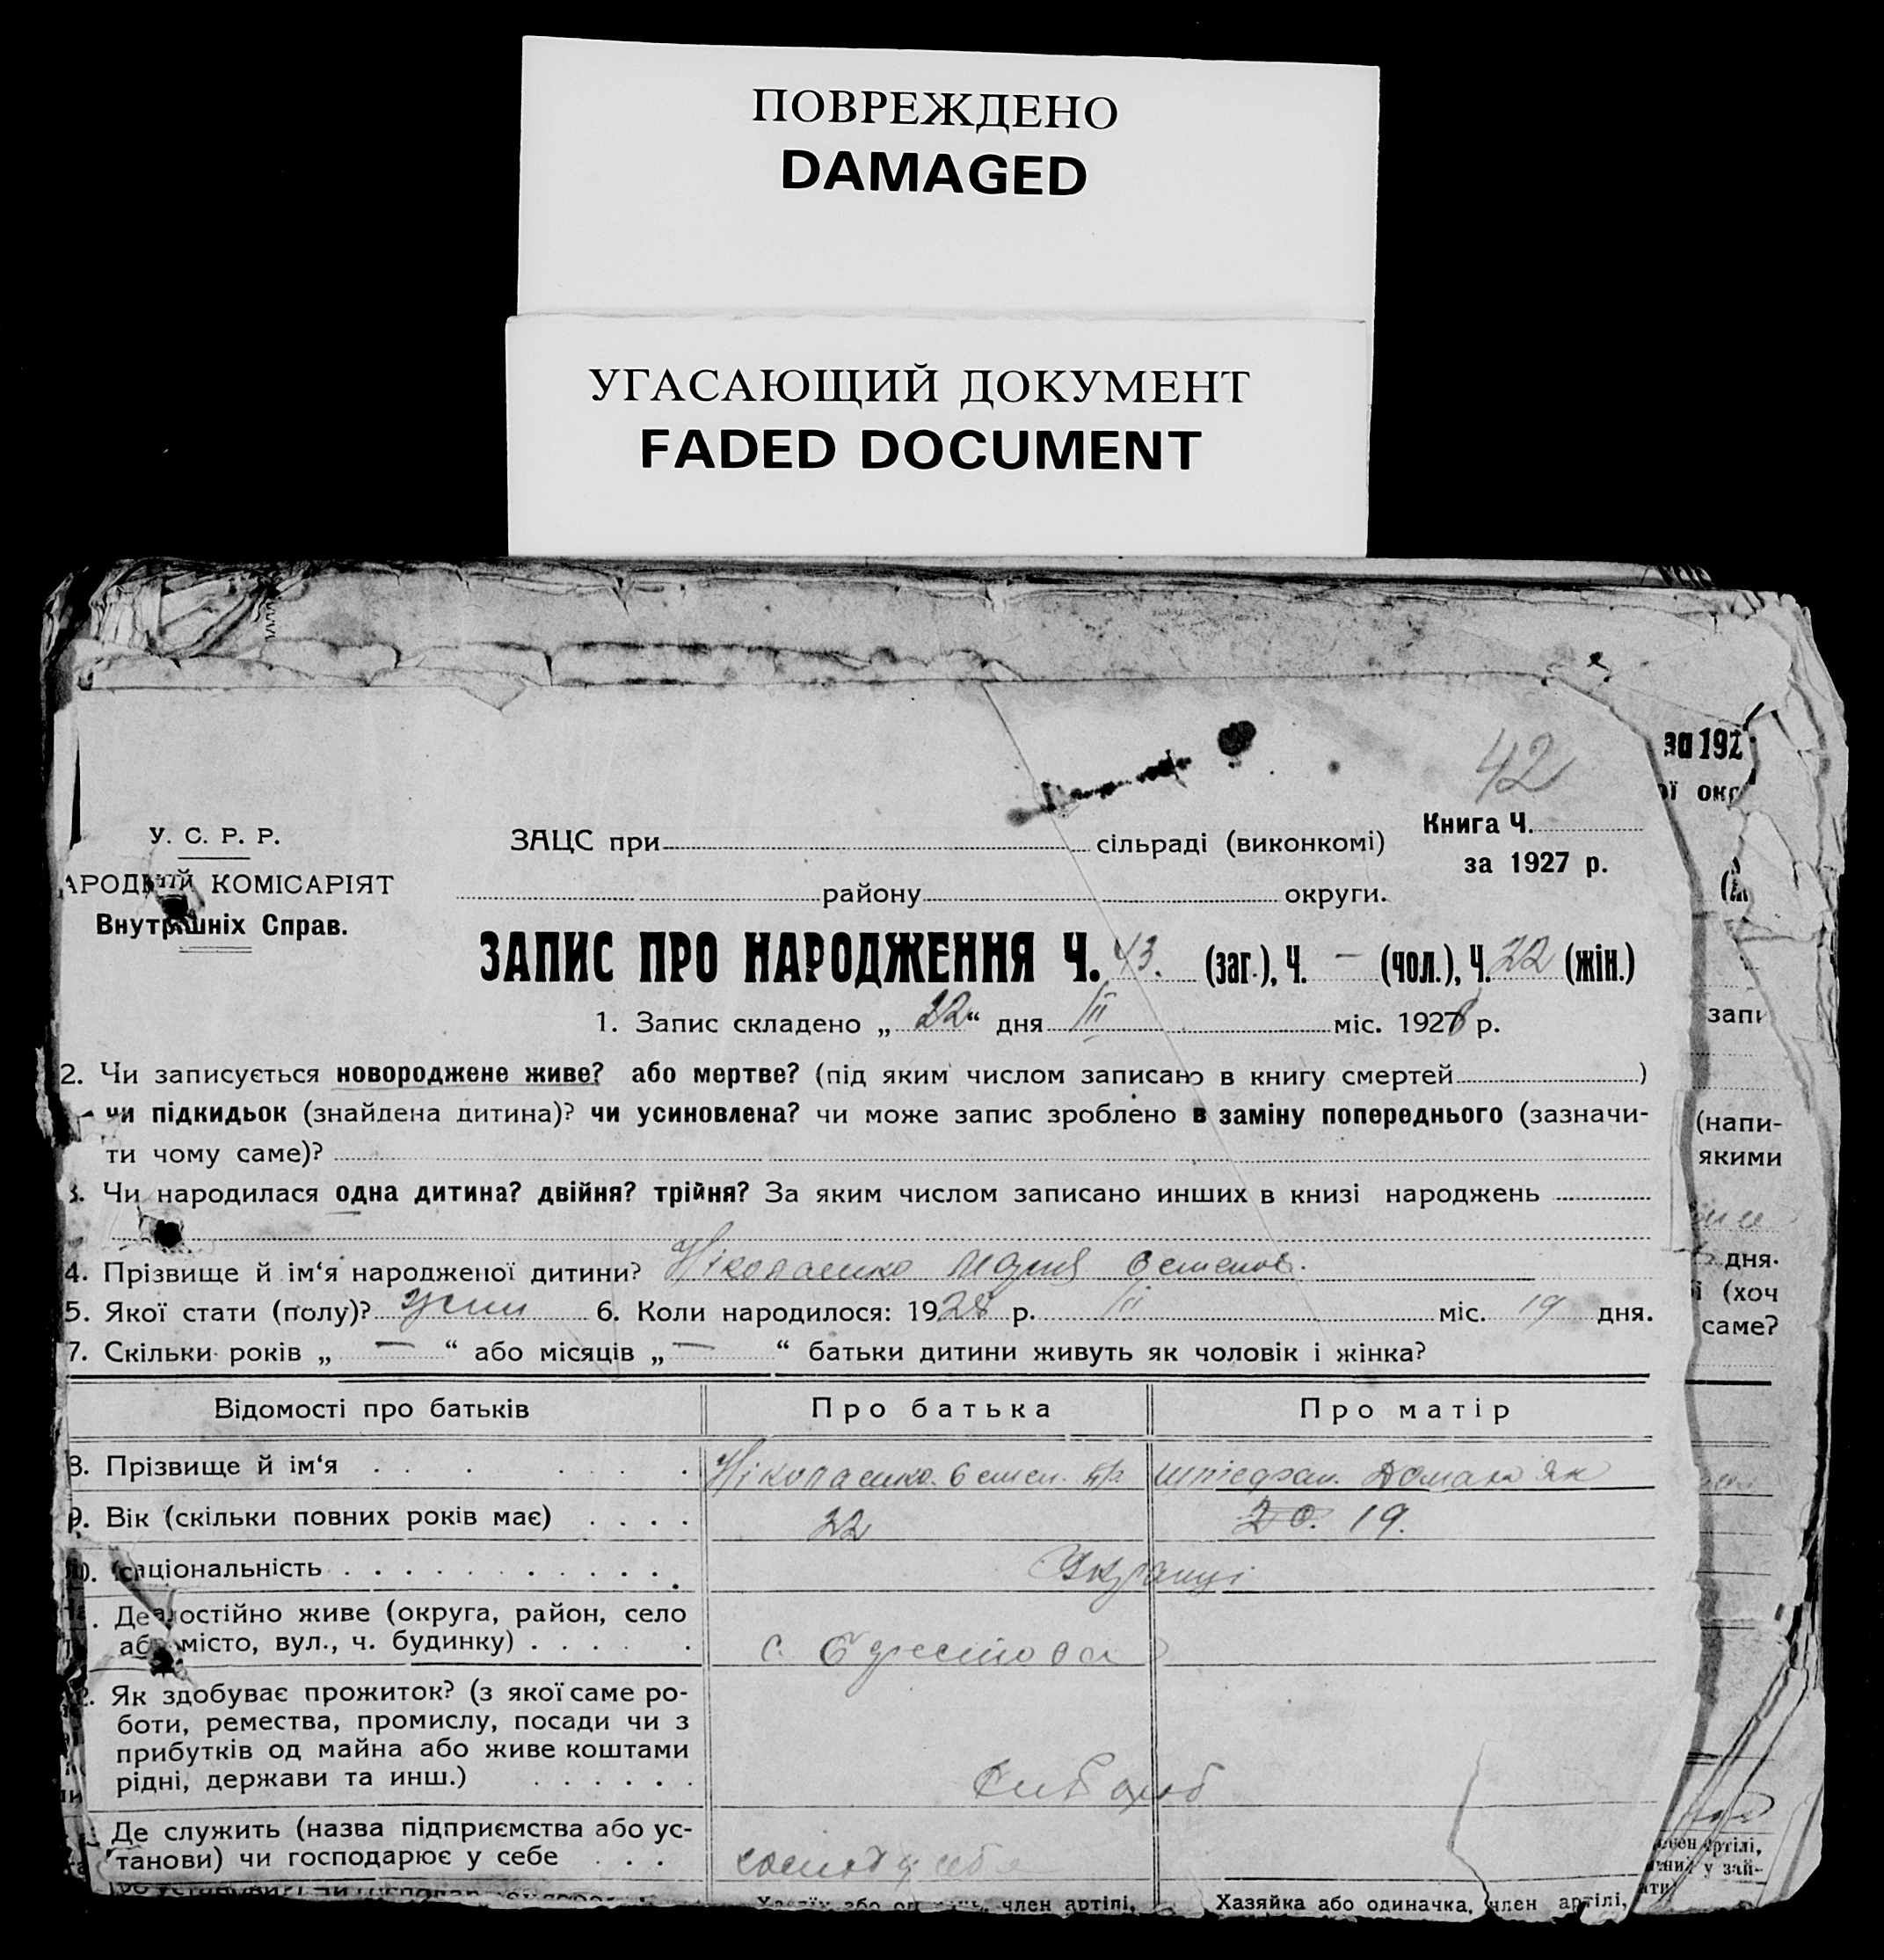 ПОВРЕЖДЕНО
DAMAGED
УГАСАЮЩИЙ ДОКУМЕНТ
FADED DOCUMENT
за 192
ої окр
42
У. С. Р. Р.
АРОДНІЙ КОМІСАРІЯТ
Внутрішніх Справ.
ЗАЦС при сільраді (виконкомі)
Книга Ч.
за 1927 р.
району округи.
ЗАПИС ПРО НАРОДЖЕННЯ Ч. 43. (заг.), Ч. — (чол.), Ч. 22 (жін.)
1. Запис складено „ 22 “ дня III міс. 1928 р.
запи
2. Чи записується новороджене живе? або мертве? (під яким числом записано в книгу смертей )
чи підкидьок (знайдена дитина)? чи усиновлена? чи може запис зроблено в заміну попереднього (зазначи-
ти чому саме)?
(напи-
якими
3. Чи народилася одна дитина? двійня? трійня? За яким числом записано инших в книзі народжень
4. Прізвище й ім‘я народженої дитини? Ніколаенко Мария
дня.
5. Якої стати (полу)? жин 6. Коли народилося: 1928 р. III міс. 19 дня.
(хоч
саме?
7. Скільки років „ — “ або місяців „ — “ батьки дитини живуть як чоловік і жінка?
Відомості про батьків Про батька Про матір
8. Прізвище й ім‘я Ніколаенко
9. Вік (скільки повних років має) 22 20. 19.
10. Національність Украинці
. Де постійно живе (округа, район, село
або місто, вул., ч. будинку) с.
. Як здобуває прожиток? (з якої саме ро-
боти, ремества, промислу, посади чи з
прибутків од майна або живе коштами
рідні, держави та инш.)
Де служить (назва підприємства або ус-
танови) чи господарює у себе
Хазяїн або од член артілі, Хазяйка або одиначка, член артілі,
член артілі,
у зай-